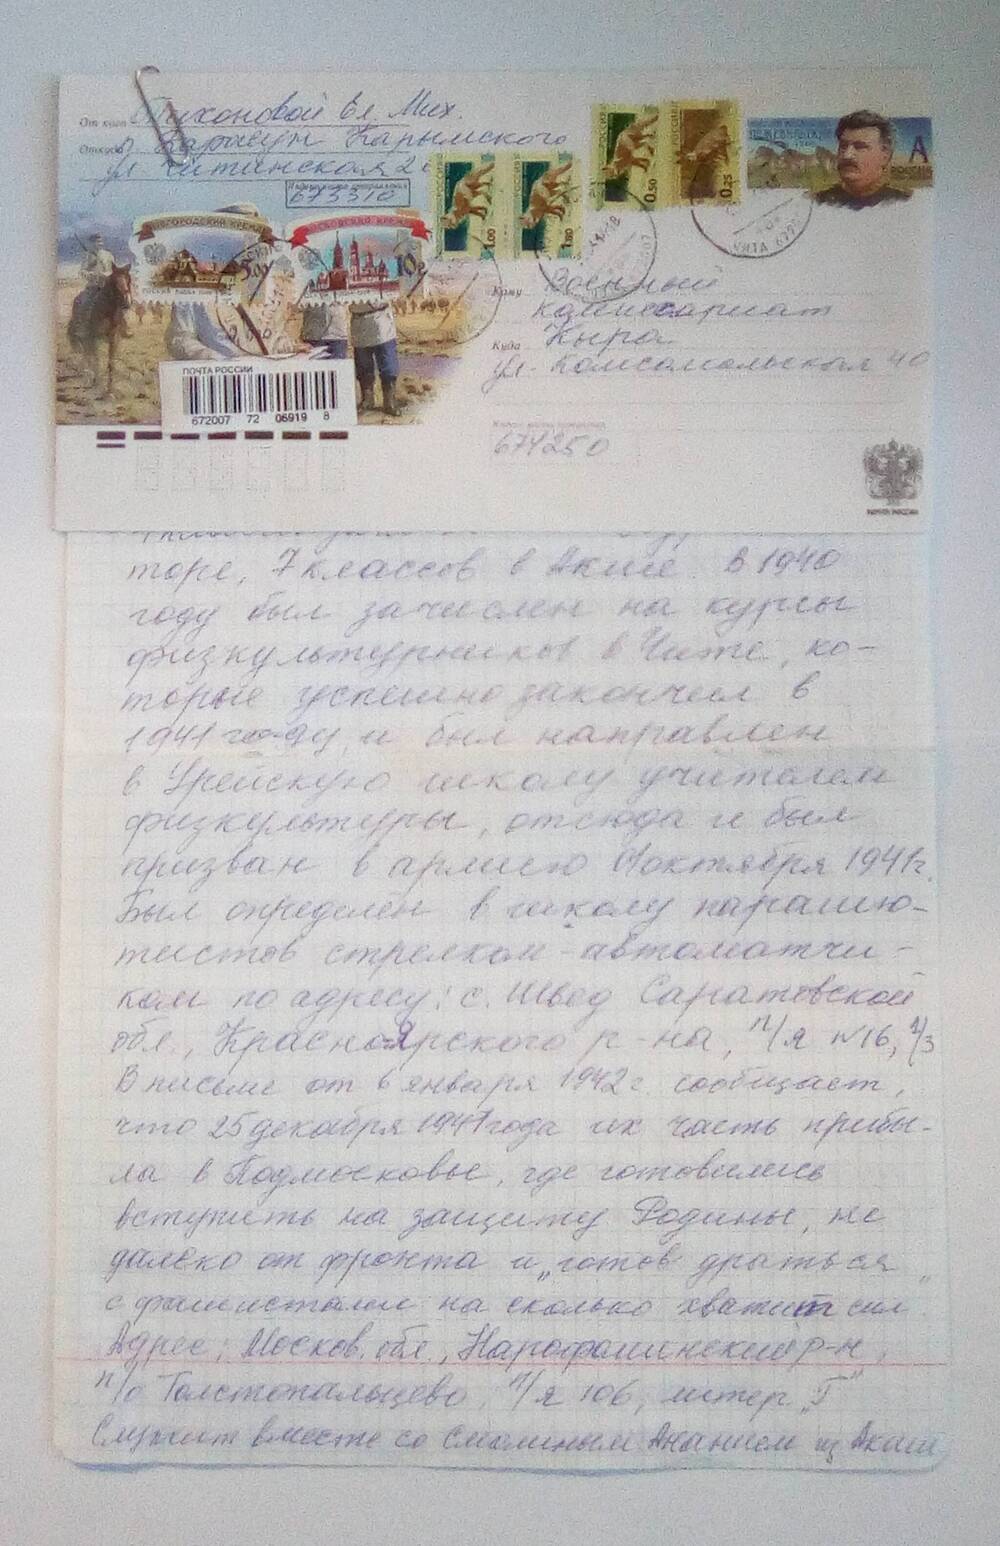 От кого Тихоновой Ел. Мих.
Откуда п. Карымского
ул. Читинская 2
673310
НОВГОРОДСКИЙ КРЕМЛЬ
МОСКОВСКИЙ КРЕМЛЬ
5.00
10р
РОССИЯ
1.00
РОССИЯ
РОССИЯ
0.50
РОССИЯ
0.25
А
РОССИЯ
ЧИТА
Кому Военный
комиссариат
Куда Кыра
ул. Комсомольская 40
674250
ПОЧТА РОССИИ
672007 72 06919 8
ПОЧТА РОССИИ
торе, 7 классов в Акше. В 1940
году был зачислен на курсы
физкультурников в Чите, ко-
торые успешно закончил в
1941 году и был направлен
в Урейскую школу учителем
физкультуры, отсюда и был
призван в армию октября 1941г.
Был определён в школу парашю-
тистов стрелком-автоматчи-
ком по адресу: с. Швед Саратовской
обл., Красноярского р-на, п/я №16,
В письме от 6 января 1942 г. сообщает,
что 25 декабря 1941 года их часть прибы-
ла в Подмосковье, где готовились
вступить на защиту Родины, не
далеко от фронта и „готов драться
с фашистами на сколько хватит сил"
Адрес: Москов. обл., Нарофоминский р-н,
п/о Толстопальцево, п/я 106, литер „Г"
Служит вместе со Смолиным Ананием из Акши